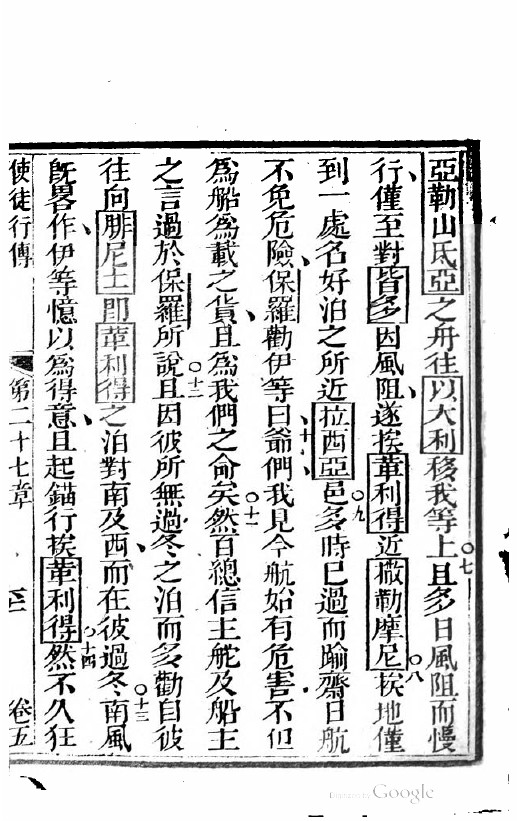 亞勒山氐亞之舟往以大利移我等上且多日風阻而慢
○七
行僅至對皆多因風阻遂挨革利得近撒勒摩尼挨地僅
○八
到一處名好泊之所近拉西亞邑多時已過而踰齋日航
○九
不免危險保羅勸伊等曰爺們我見今航始有危害不但
十
為船為載之貨且為我們之命矣然百總信主舵及船主
○十一
之言過於保羅所說且因彼所無過冬之泊而多勸自彼
○十二
往向腓尼士即革利得之泊對南及西而在彼過冬南風
○十三
既畧作伊等憶以為得意且起錨行挨革利得然不久狂
○十四
使徒行傳 第二十七章 卷五
Digitized by Google